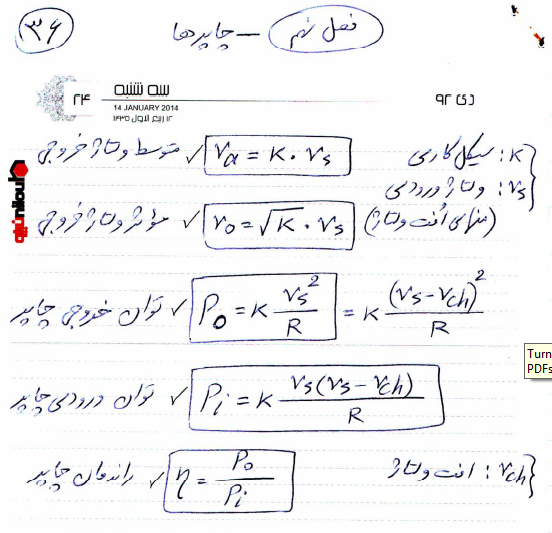 ۳۶ فصل نهم – چاپرها
۲۴ سه شنبه دی ۹۲
14 JANUARY 2014
۱۲ ربیع الاول ۱۴۳۵
K: سیکل کاری
Va = K · Vs ✓ متوسط ولتاژ خروجی
Vs: ولتاژ ورودی
(منهای اُفت ولتاژ) Vo = √K · Vs ✓ مؤثر ولتاژ خروجی
Po = K Vs²/R = K (Vs − Vch)²/R ✓ توان خروجی چاپر
Pi = K Vs(Vs − Vch)/R ✓ توان ورودی چاپر
Vch: افت ولتاژ η = Po/Pi ✓ راندمان چاپر
Turn
PDFs